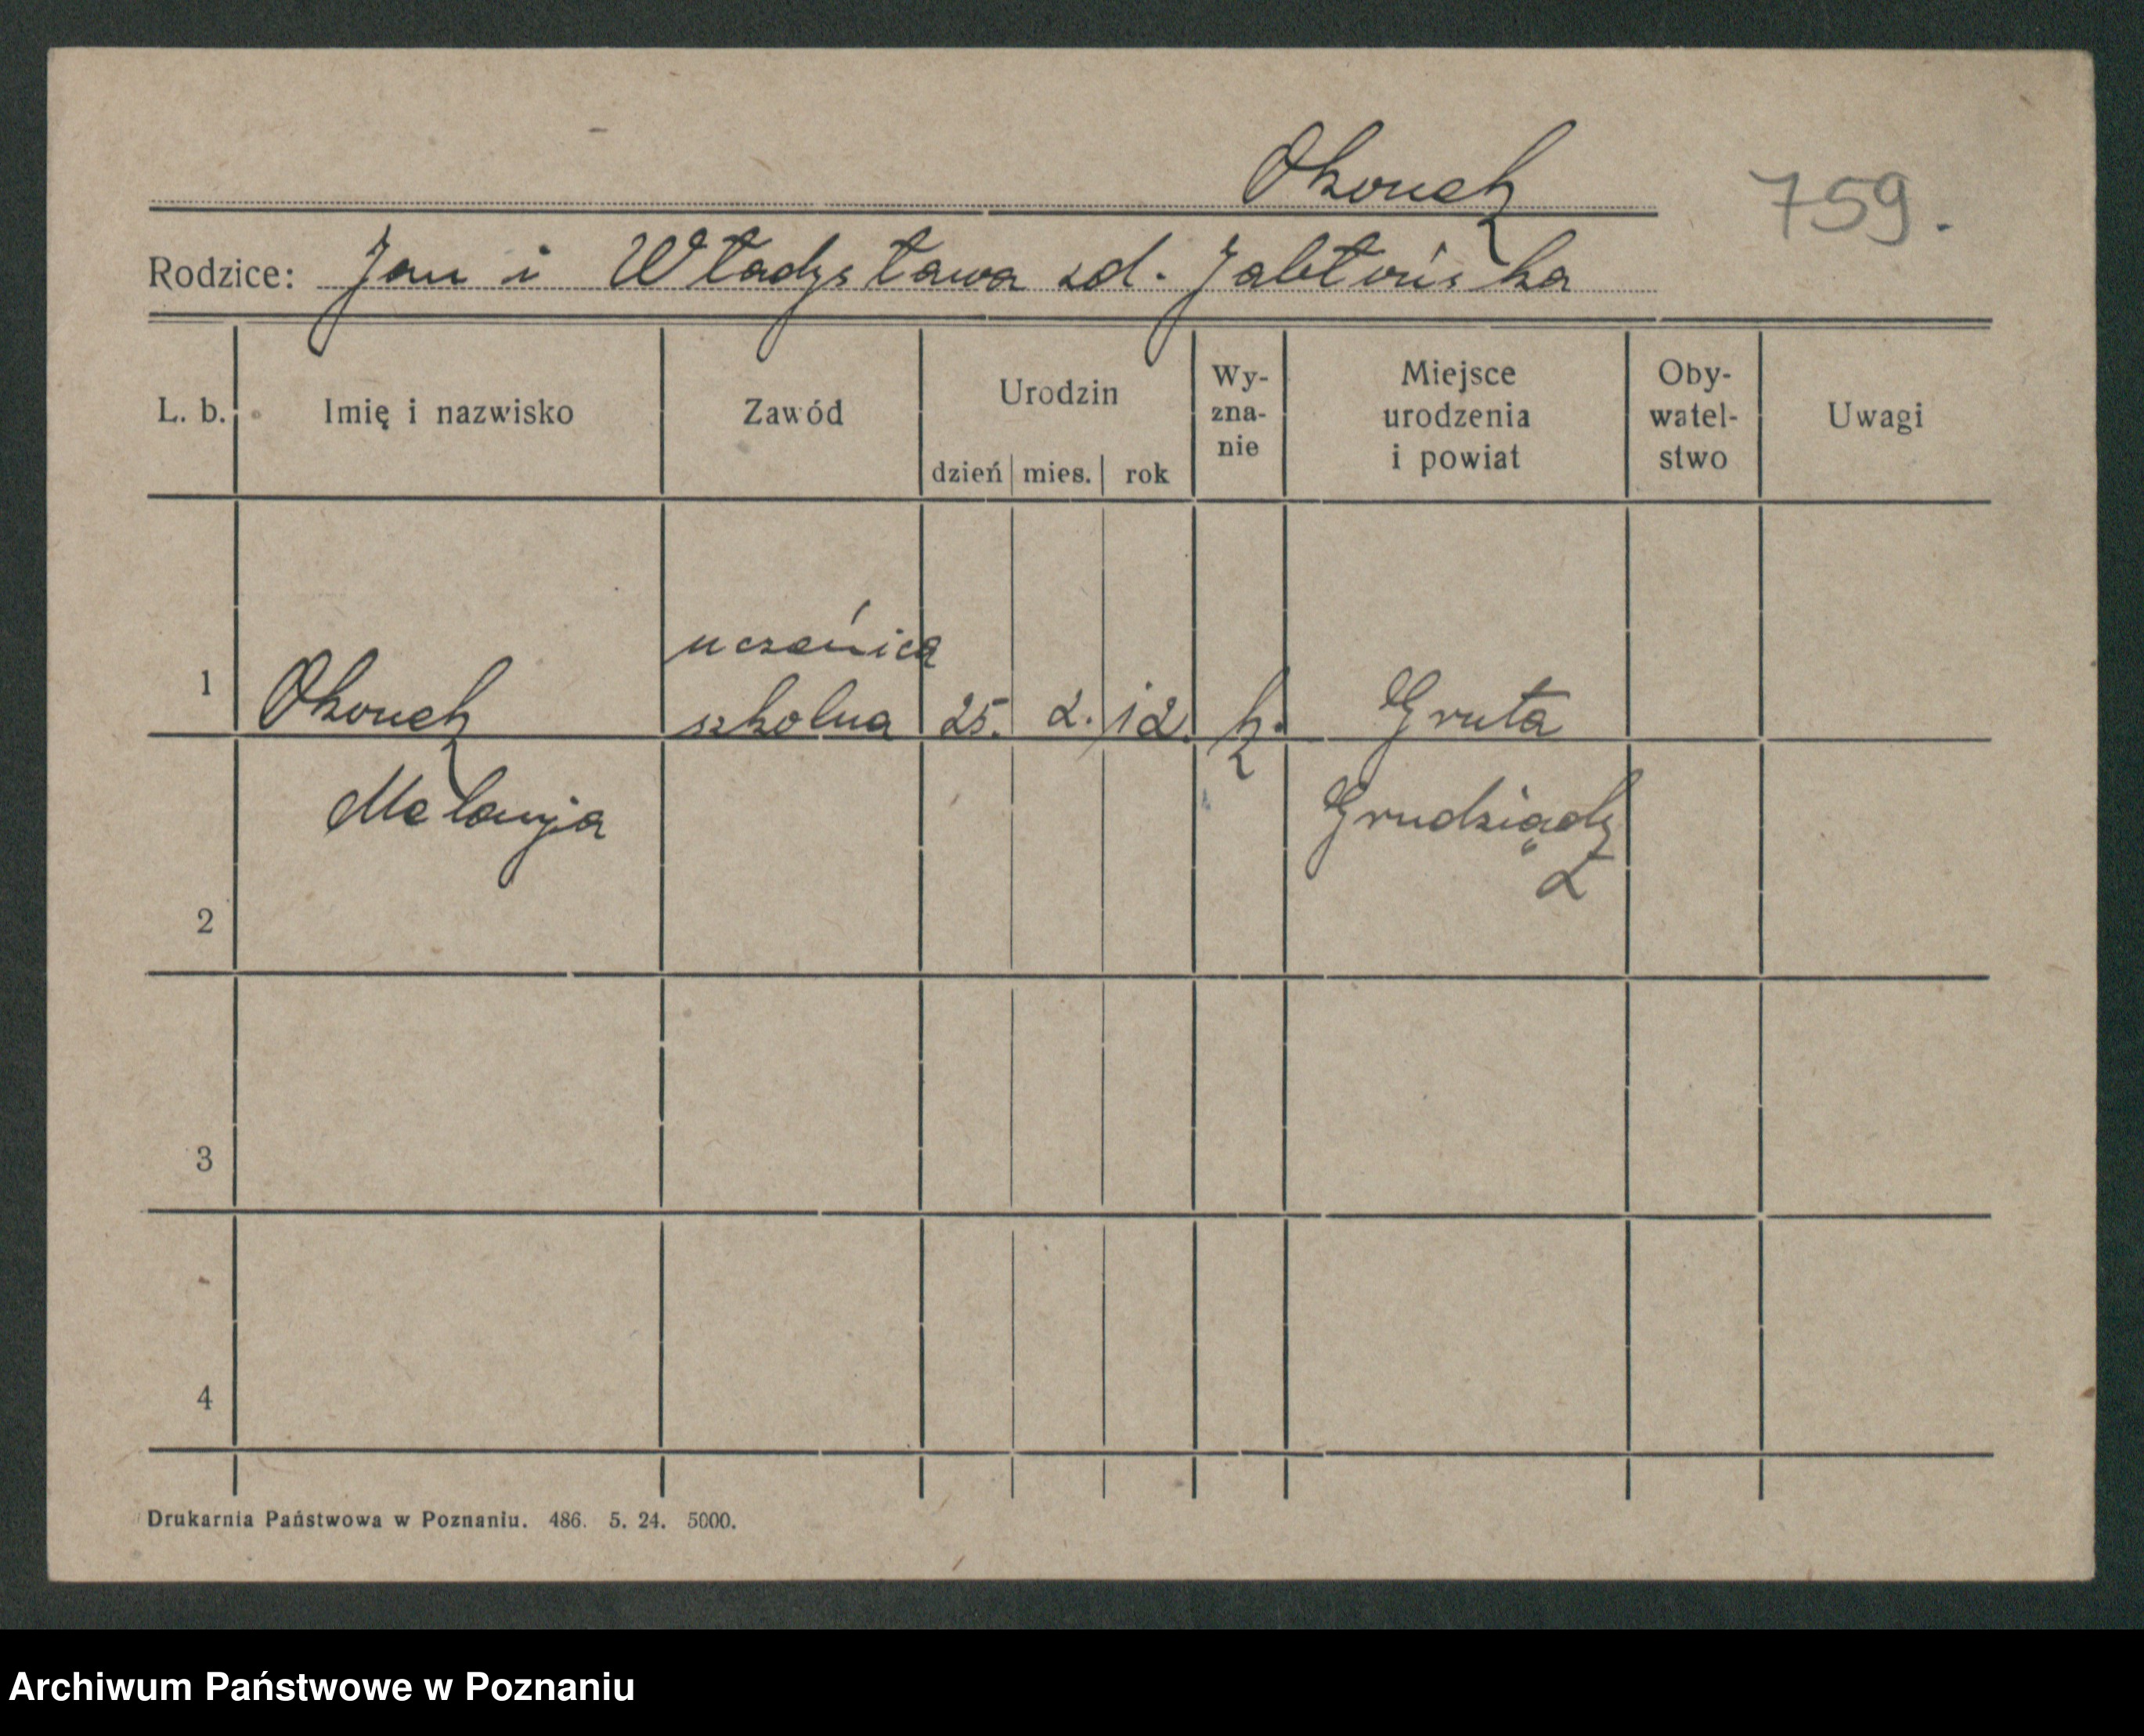 Okonek
759.
Rodzice: Jan i Władysława zd. Jabłońska
L. b. Imię i nazwisko Zawód Urodzin dzień mies. rok Wy-zna-nie Miejsce urodzenia i powiat Oby-watel-stwo Uwagi
uczeńica
1 Okonek szkolna 25. 2. 12. k. Gruta
Melanja Grudziądz
2
3
4
Drukarnia Państwowa w Poznaniu. 486. 5. 24. 5000.
Archiwum Państwowe w Poznaniu